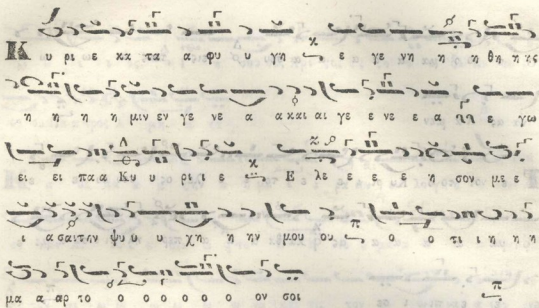 Κ υ ρι ε κα τα α φυ υ γη κ ε γε νη η η θη η ης
η η η η μιν εν γε νε α α και αι γε ε νε ε α ππ ε γω
ει ει πα α Κυ υ ρι ι ε κ Ε λε ε ε ε η σον με ε
ι α σαι την ψυ υ υ χη η ην μου ου π ο ο τι ι η η η
μα α αρ το ο ο ο ο ο ο ον σοι π